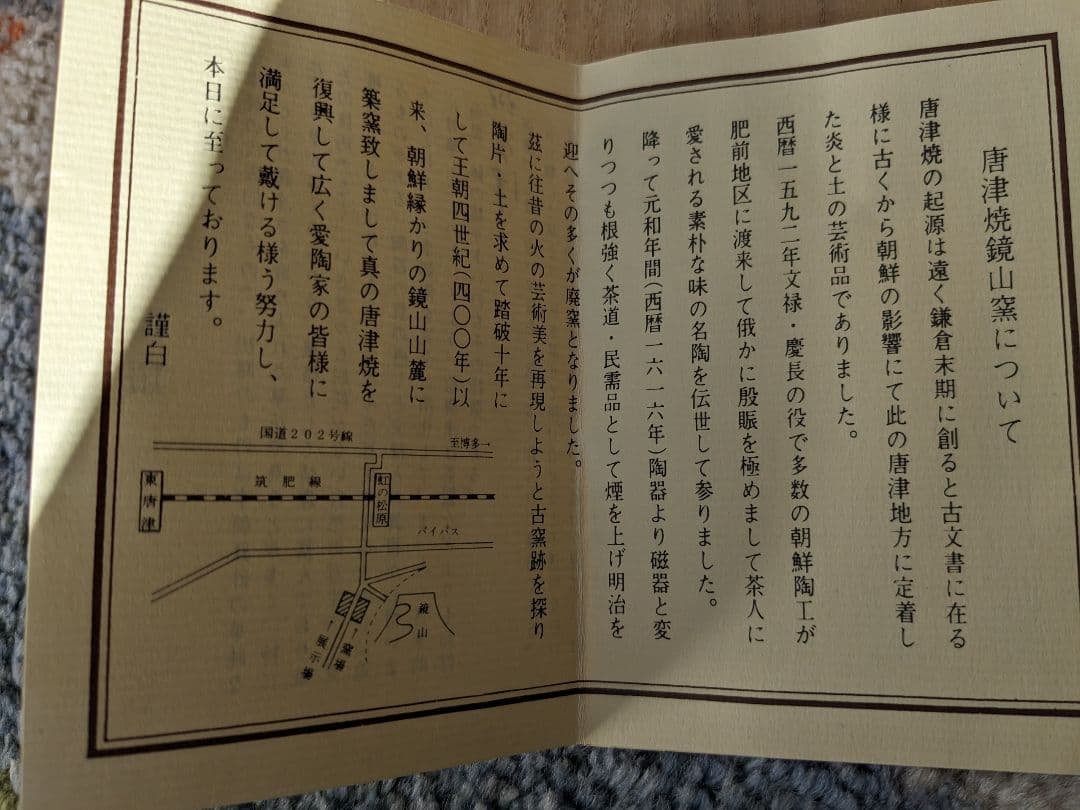 唐津焼鏡山窯について
唐津焼の起源は遠く鎌倉末期に創ると古文書に在る
様に古くから朝鮮の影響にて此の唐津地方に定着し
た炎と土の芸術品でありました。
西暦一五九二年文禄・慶長の役で多数の朝鮮陶工が
肥前地区に渡来して俄かに殷賑を極めまして茶人に
愛される素朴な味の名陶を伝世して参りました。
降って元和年間(西暦一六一六年)陶器より磁器と変
りつつも根強く茶道・民需品として煙を上げ明治を
迎へその多くが廃窯となりました。
茲に往昔の火の芸術美を再現しようと古窯跡を探り
陶片・土を求めて踏破十年に
して王朝四世紀(四〇〇年)以
来、朝鮮縁かりの鏡山山麓に
築窯致しまして真の唐津焼を
復興して広く愛陶家の皆様に
満足して戴ける様う努力し、
本日に至っております。
謹白
国道202号線
至博多→
筑肥線
東唐津
虹の松原
バイパス
鏡山
←窯場
←展示場